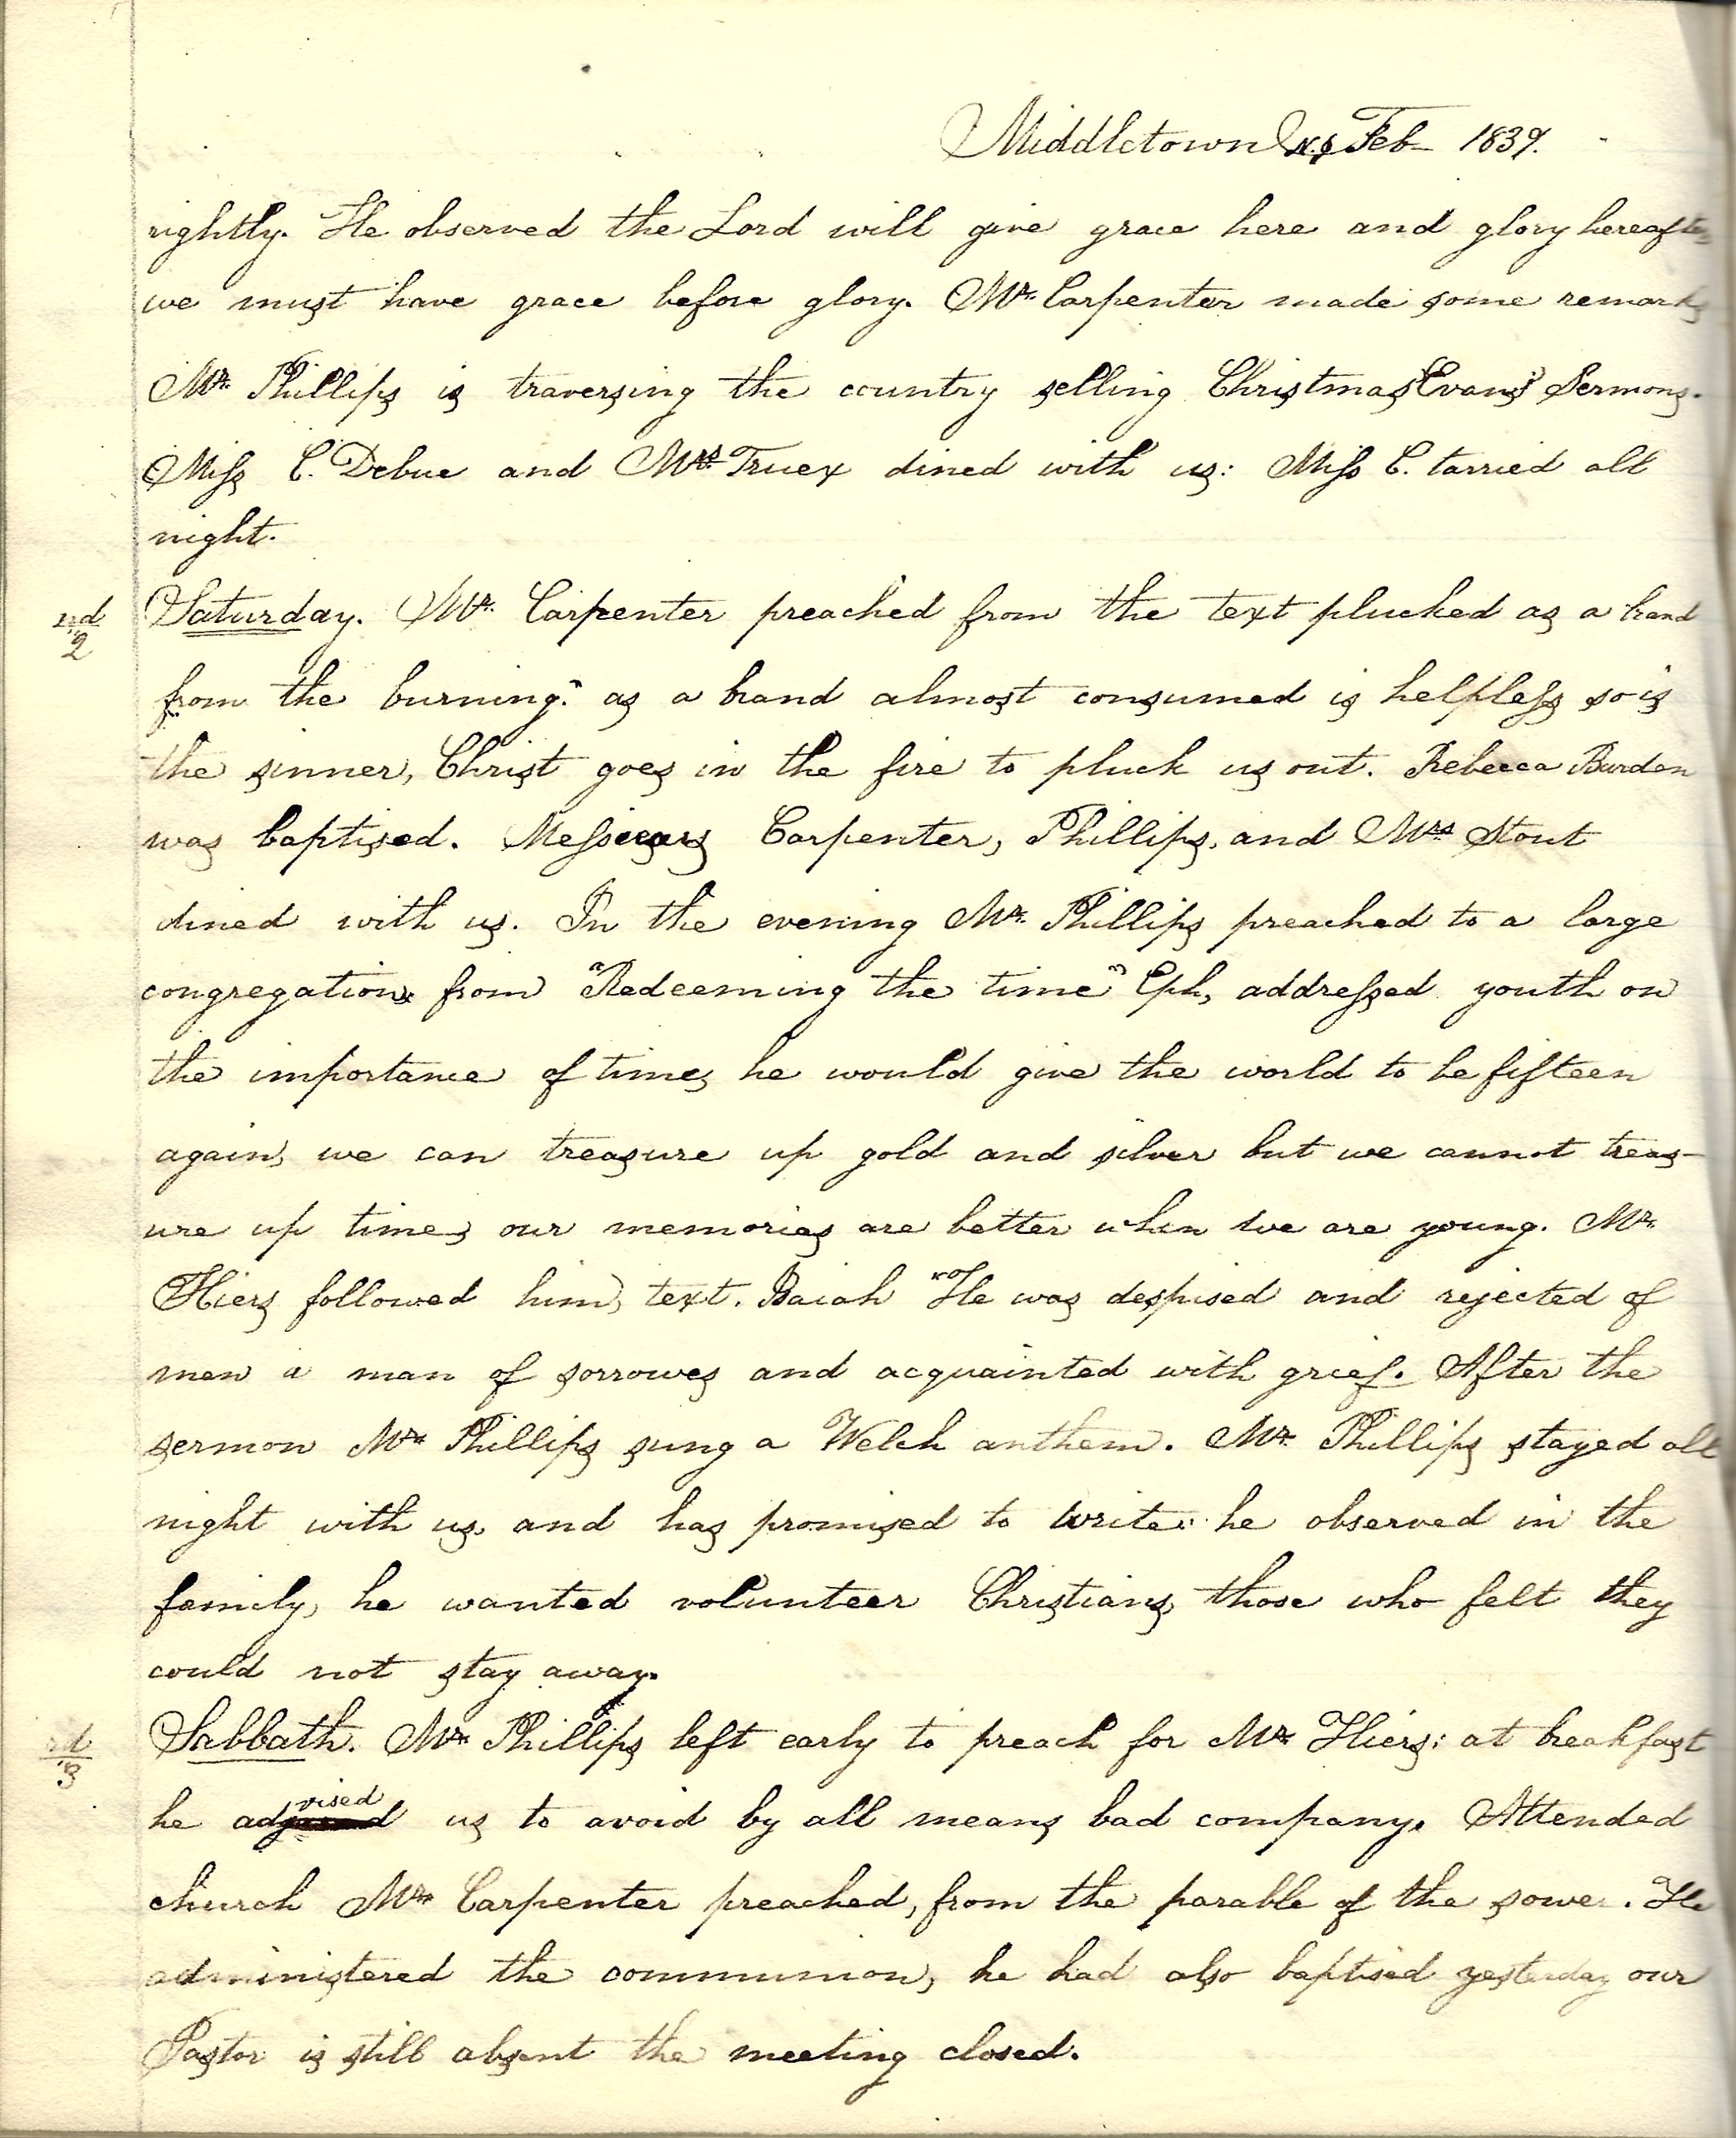 Middletown N.J. Feb 1839.
rightly. He observed the Lord will give grace here and glory hereafter
we must have grace before glory. Mr. Carpenter made some remarks
Mr. Phillips is traversing the country selling Christmas Evans' Sermons.
Miss C. Debue and Mrs. Truex dined with us: Miss C. tarried all
night.
2nd Saturday. Mr. Carpenter preached from the text plucked as a brand
from the burning." as a brand almost consumed is helpless so is
the sinner, Christ goes in the fire to pluck us out. Rebecca Burden
was baptised. Carpenter, Phillips, and Mrs Stout
dined with us. In the evening Mr. Phillips preached to a large
congregation from "Redeeming the time" Eph, addressed youth on
the importance of time, he would give the world to be fifteen
again, we can treasure up gold and silver but we cannot treas-
ure up time, our memories are better when we are young. Mr.
Hiers followed him, text. Isaiah "He was despised and rejected of
men a man of sorrows and acquainted with grief. After the
sermon Mr. Phillips sung a Welch anthem. Mr. Phillips stayed all
night with us, and has promised to write: he observed in the
family, he wanted volunteer Christians, those who felt they
could not stay away.
3rd Sabbath. Mr. Phillips left early to preach for Mr. Hiers: at breakfast
he advised us to avoid by all means bad company. Attended
church Mr. Carpenter preached, from the parable of the sower. He
administered the communion, he had also baptised yesterday our
Pastor is still absent the meeting closed.